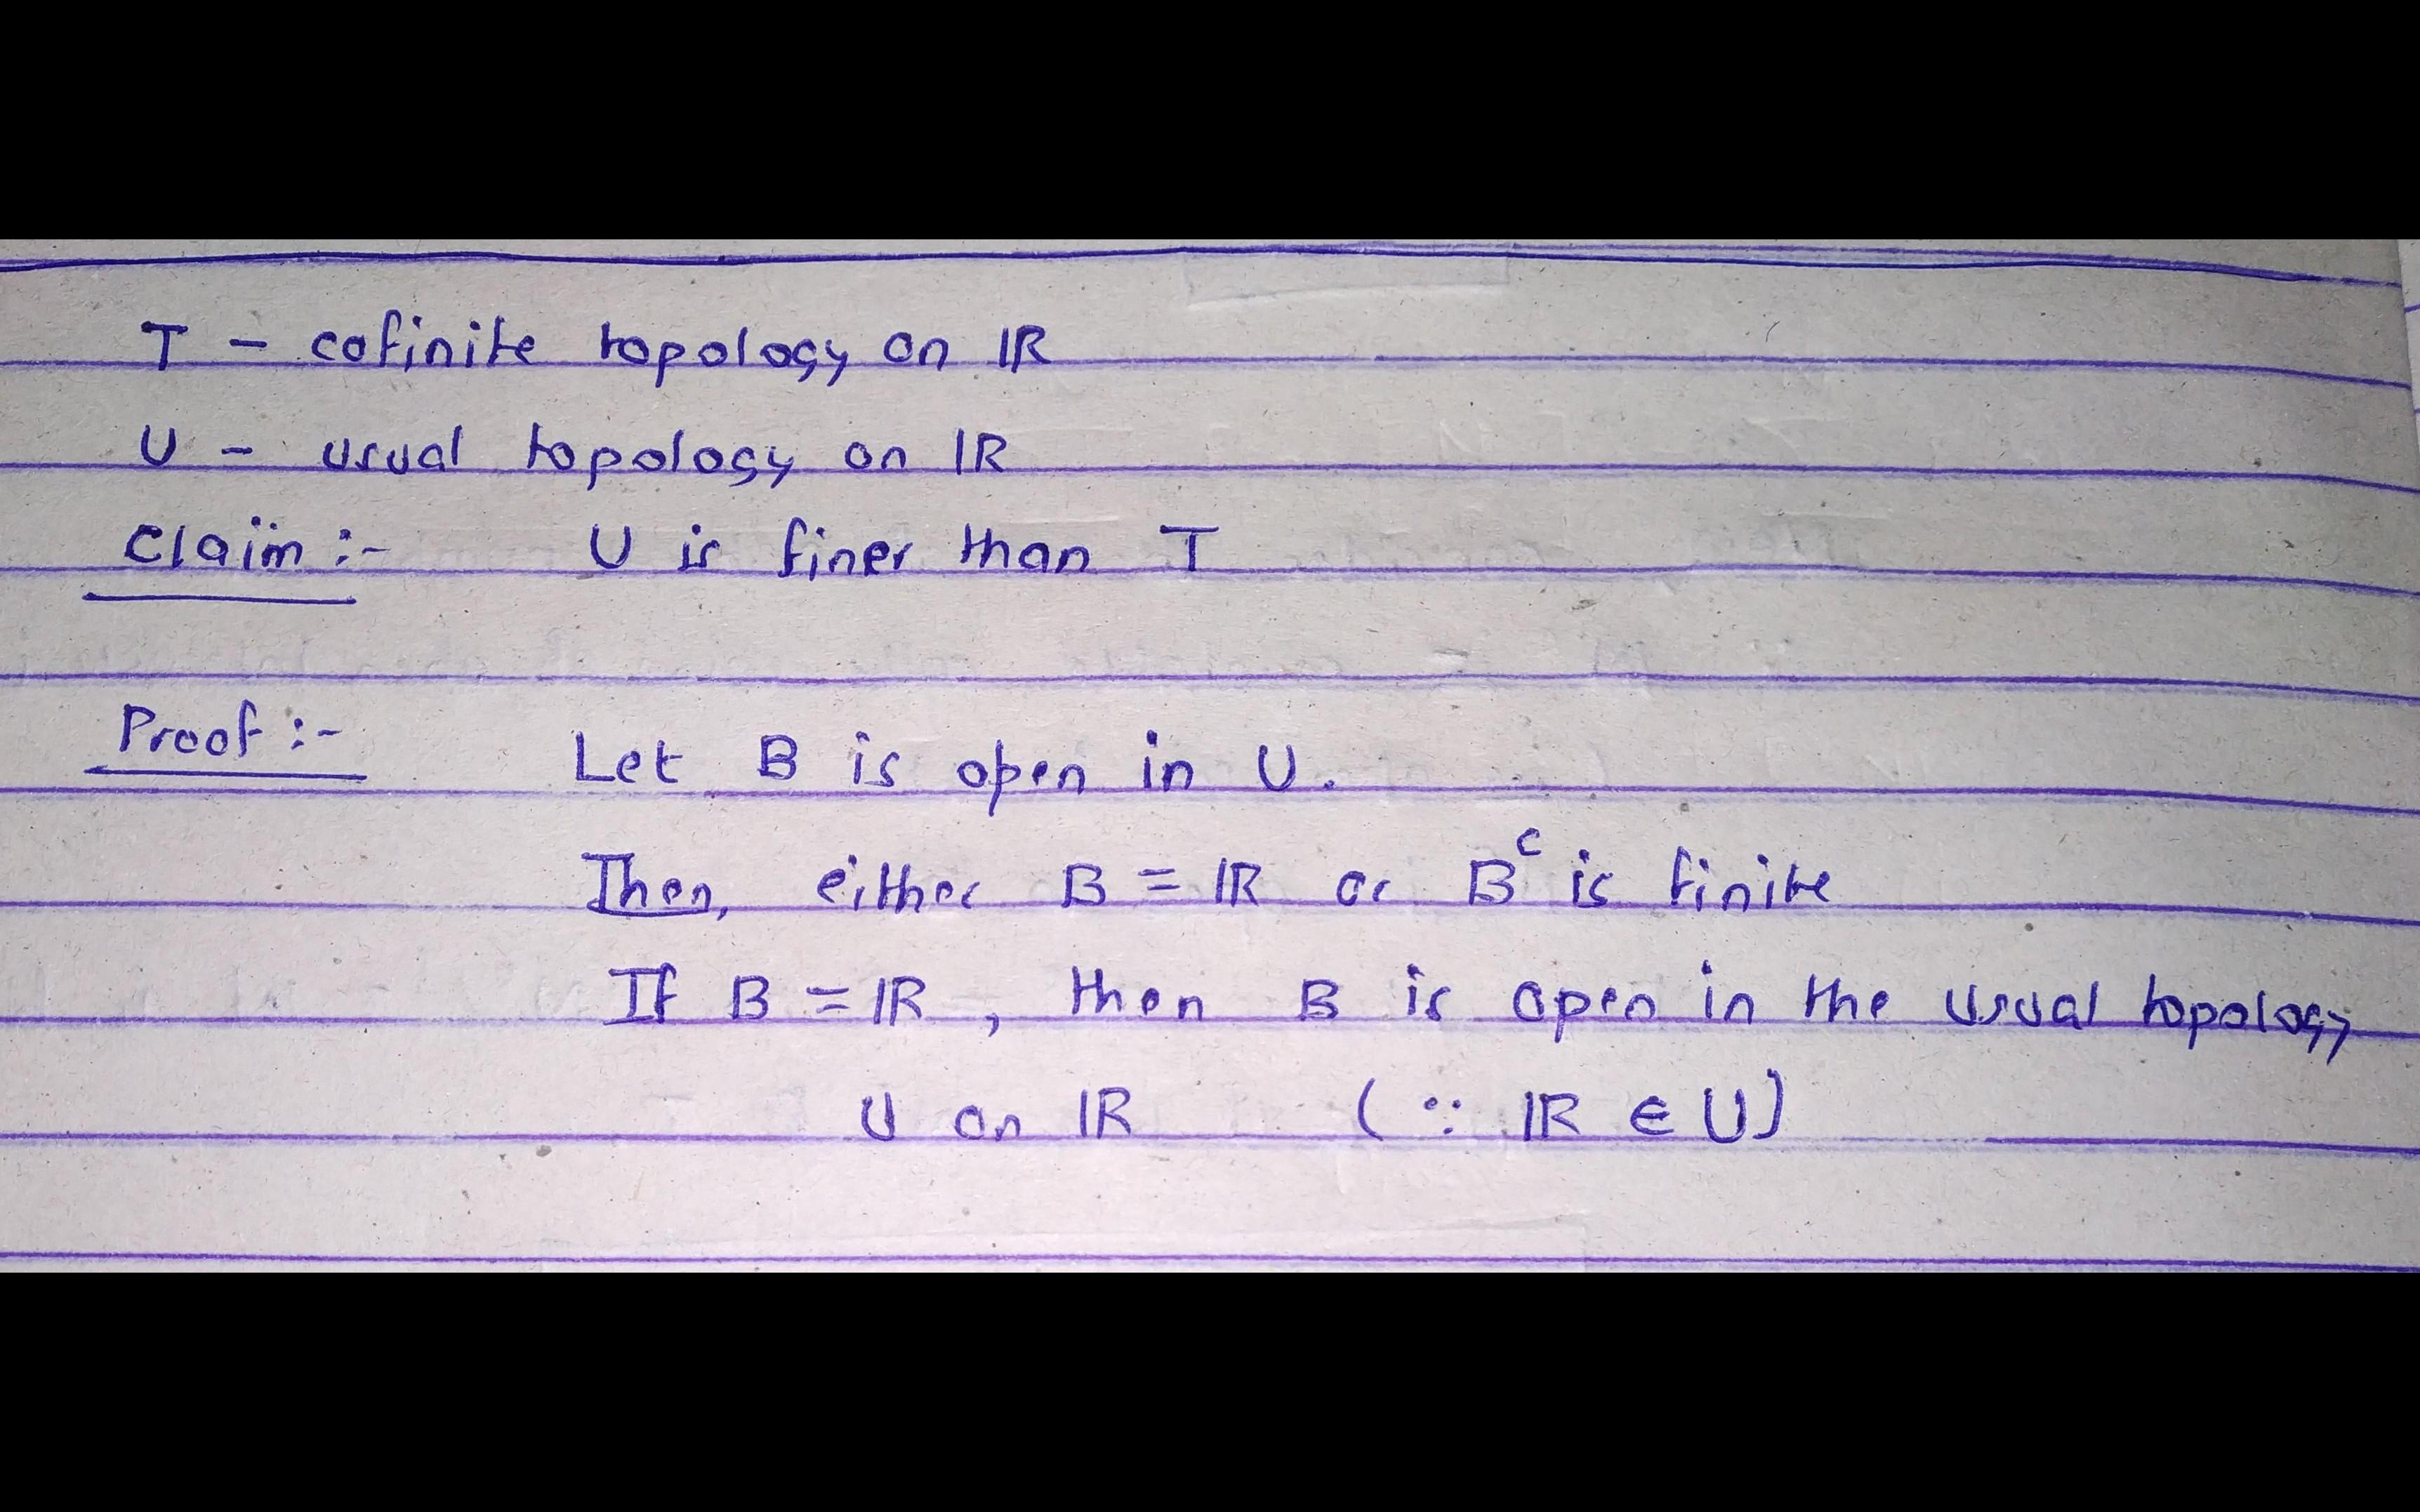 T - cofinite topology on IR
U - usual topology on IR
Claim :- U is finer than T
Proof :- Let B is open in U.
Then, either B = IR or Bᶜ is finite
If B = IR , then B is open in the usual topology
U on IR (∵ IR ∈ U)